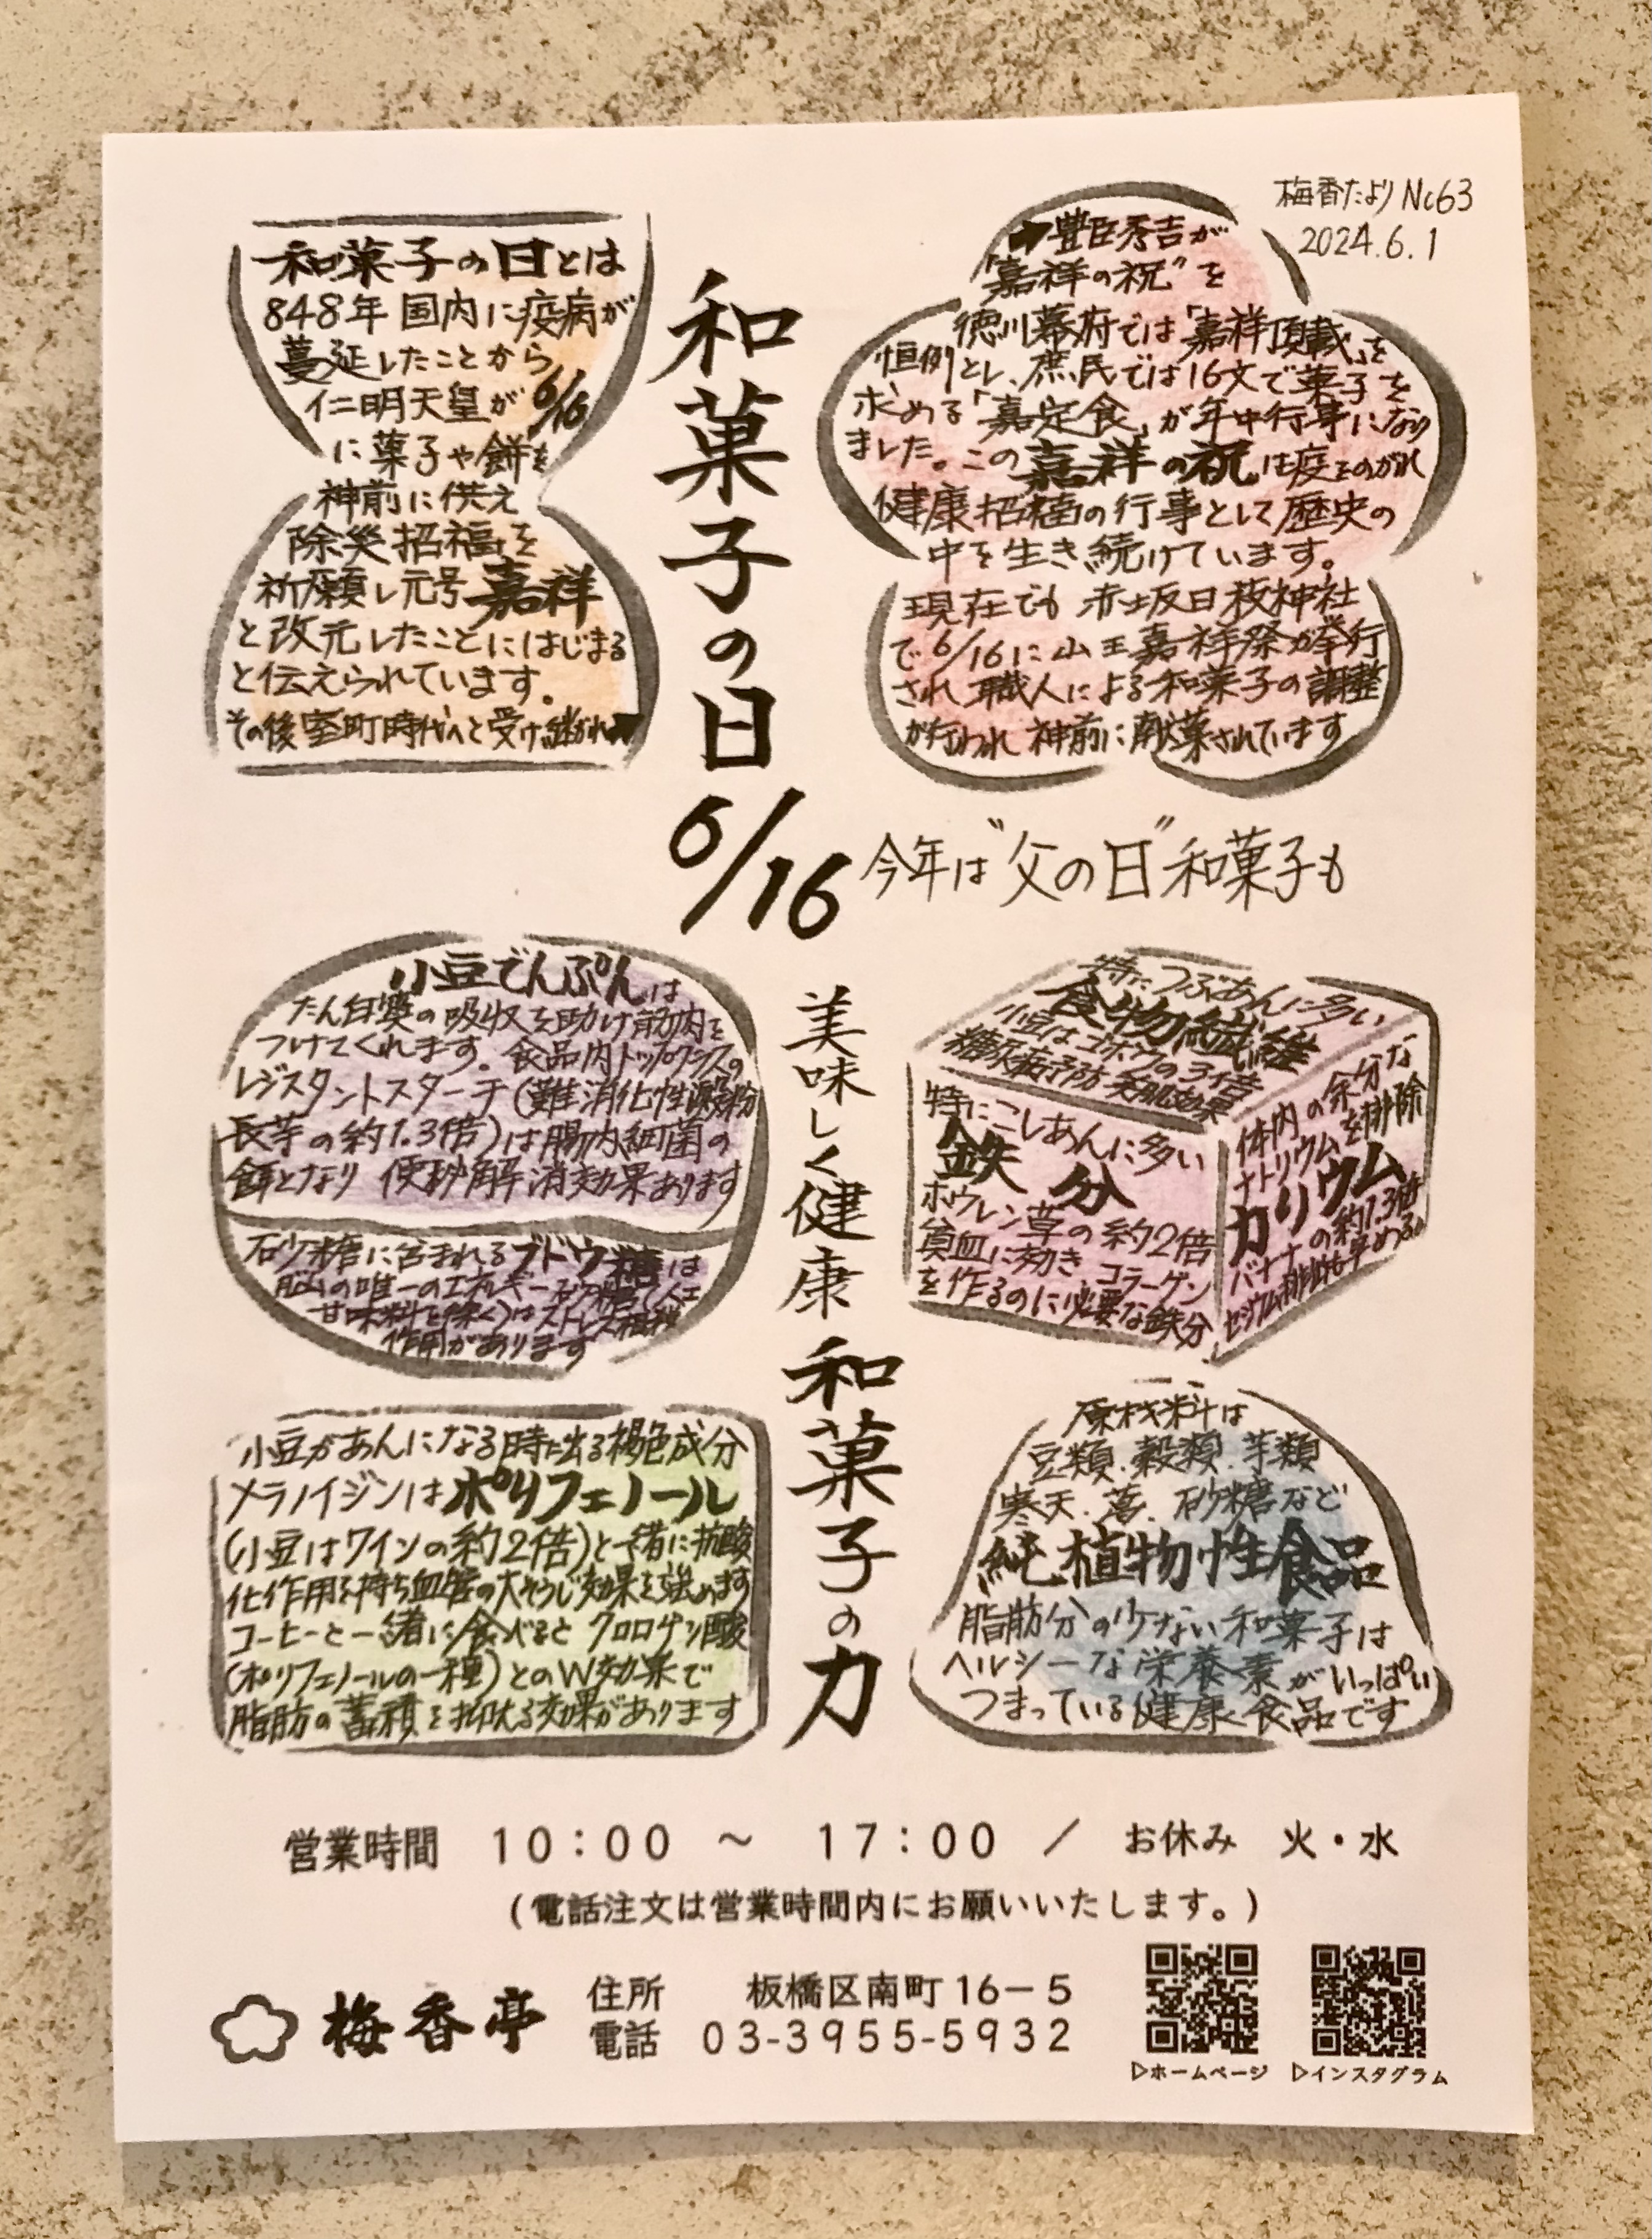 梅香たより No63
2024.6.1
和菓子の日
6/16
今年は“父の日”和菓子も
和菓子の日とは
848年 国内に疫病が
蔓延したことから
仁明天皇が6/16
に菓子や餅を
神前に供え
除災招福を
祈願し元号嘉祥
と改元したことにはじまる
と伝えられています。
その後室町時代へと受け継がれ➡
➡豊臣秀吉が
“嘉祥の祝”を
徳川幕府では「嘉祥頂戴」を
恒例とし、庶民では16文で菓子を
求める「嘉定食」が年中行事になり
ました。この嘉祥の祝は疫をのがれ
健康招福の行事として歴史の
中を生き続けています。
現在でも 赤坂日枝神社
で6/16に山王嘉祥祭が挙行
され 職人による和菓子の調整
が行われ 神前に献菓されています
美味しく健康 和菓子の力
小豆でんぷんは
たん白質の吸収を助け筋肉を
つけてくれます。食品内トップクラスの
レジスタントスターチ(難消化性澱粉
長芋の約1.3倍)は腸内細菌の
餌となり 便秘解消効果あります
砂糖に含まれるブドウ糖は
脳の唯一のエネルギー 砂糖(人工
甘味料を除く)はストレス緩和
作用があります
特につぶあんに多い
食物繊維
小豆はゴボウの3倍
糖尿病予防 美肌効果
特にこしあんに多い
鉄分
ホウレン草の約2倍
貧血に効き コラーゲン
を作るのに必要な鉄分
体内の余分な
ナトリウムを排除
カリウム
バナナの約1.3倍
セシウム排出も早める。
小豆があんになる時に出る褐色成分
メラノイジンはポリフェノール
(小豆はワインの約2倍)と一緒に抗酸
化作用を持ち血管の大そうじ効果を強めます
コーヒーと一緒に食べると クロロゲン酸
(ポリフェノールの一種)とのW効果で
脂肪の蓄積を抑える効果があります
原材料は
豆類.穀類.芋類
寒天.葛.砂糖など
純植物性食品
脂肪分の少ない和菓子は
ヘルシーな栄養素がいっぱい
つまっている健康食品です
営業時間 10:00 ～ 17:00 / お休み 火・水
(電話注文は営業時間内にお願いいたします。)
梅香亭
住所 板橋区南町16－5
電話 03-3955-5932
▷ホームページ
▷インスタグラム